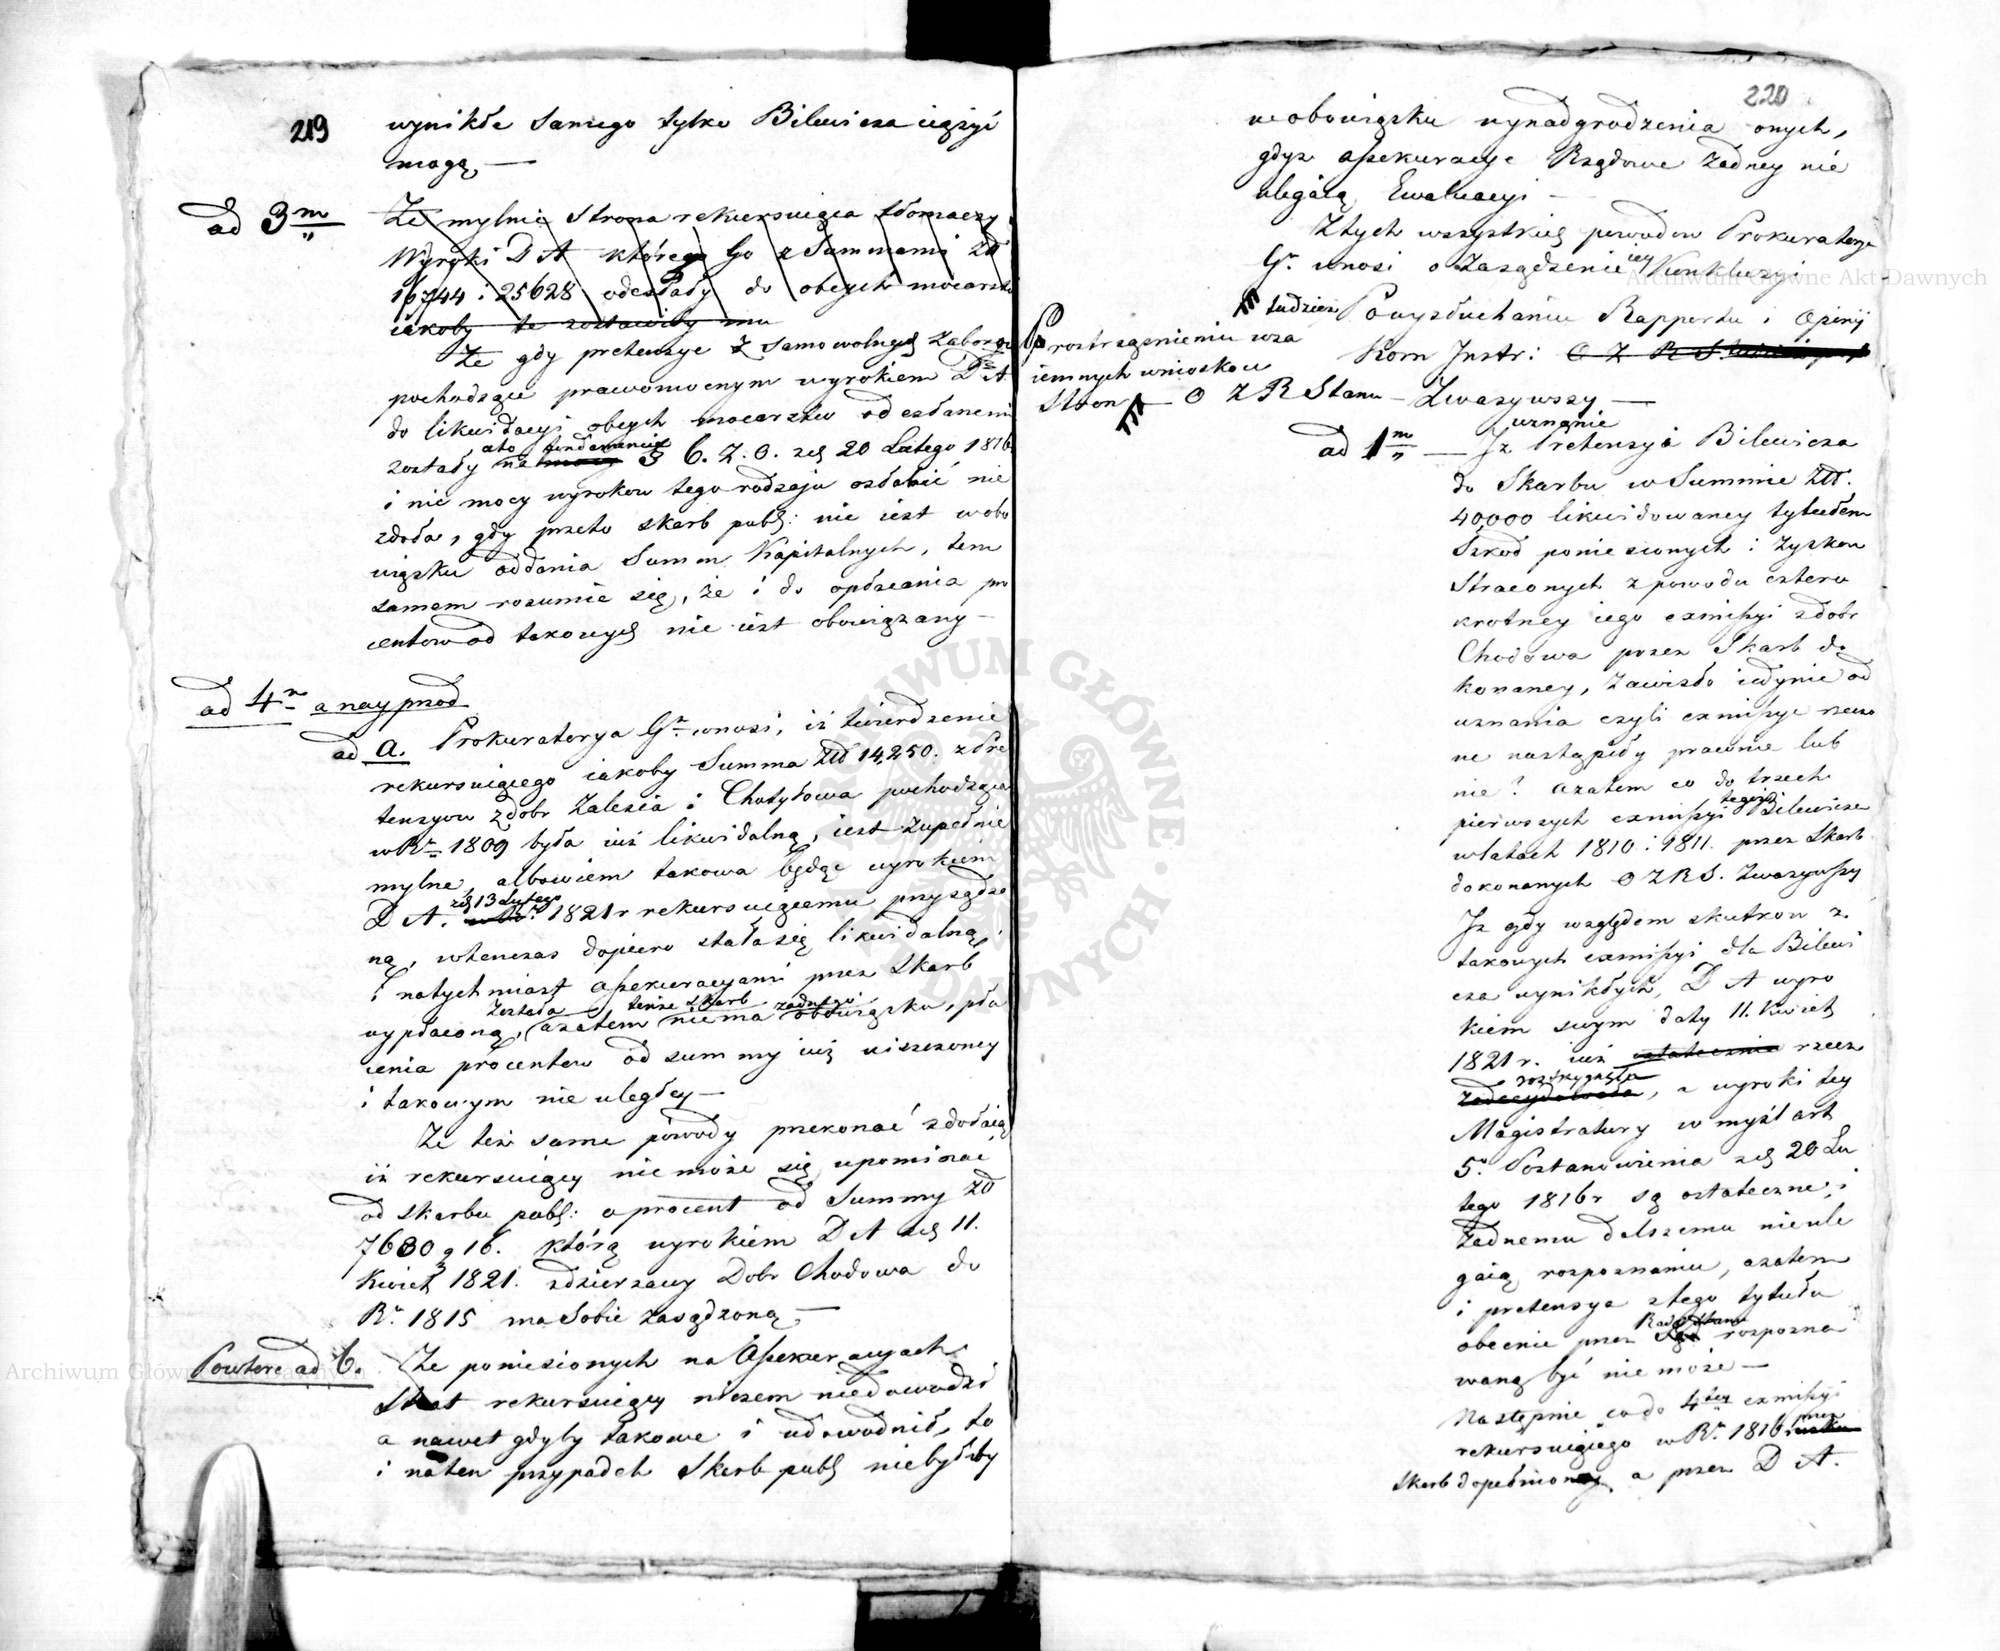 219
wynikłe samego tylko Bilewicza ciążyć
mogą, —
ad 3m
Że mylnie Strona rekursuiąca tłomaczy
Wyroki D A którego Go z Summami Złł
16744 i 25628 odesłały do obcych mocarstw
iakoby te zostawiły mu
Że gdy pretensye z samowolnych zaborow
pochodzące prawomocnym wyrokiem D A
do likwidacyi obcych mocarstw odesłanemi
ato fundamencie
zostały na mocy § 6. Z. O. zd 20 Lutego 1816
i nic mocy wyrokow tego rodzaju osłabić nie
zdoła, gdy przeto skarb publ: nie iest w obo
wiązku oddania Summ Kapitalnych, tem
samem rozumie się, że i do opłacania pro
centow od takowych nie iest obowiązany —
ad 4m a nayprzod
ad a. Prokuratorya Gn wnosi, iż twierdzenie
rekursuiącego iakoby Summa Złł 14,250. z Pre
tensyow z dobr Zalesia i Chotyłowa pochodząca
w Rn 1809 była iuż likwidalną, iest zupełnie
mylne, albowiem takowa będąc wyrokiem
zd 13 Lutego
D A. w Rn 1821 r rekursuiącemu przysądzo
ną, wtenczas dopiero stała się likwidalną,
i natychmiast assekuracyami przez Skarb
została tenże skarb żadnego
wypłaconą, azatem niema obowiązku, pła
cenia procentow od summy iuż uiszczoney
i takowym nie uległey —
Że też same powody przekonać zdołaią
iż rekursuiący nie może się upominać
od skarbu publ: o procent od Summy Zł
7680 g 16. którą wyrokiem D A zd 11.
Kwiet 1821. z dzierzawy Dobr Chodowa do
Rn 1815 ma Sobie zasądzoną, —
Powtore ad b. Że poniesionych na Assekuracyach
Strat rekursuiący niczem niedowodzi
a nawet gdyby takowe i udowodnił, to
i na ten przypadek Skarb publ niebyłby
220
w obowiązku wynadgrodzenia onych,
gdyż assekuracye Rządowe żadney nie
ulegaią Ewaluacyi —
Z tych wszystkich powodow Prokuratorya
Gn wnosi o zasądzenie iey Konkluzyi
tudzież Po wysłuchaniu Rapportu i Opinij
Kom Instr: O Z R S.
Po roztrząśnieniu wza
iemnych wnioskow
Stron — O Z R Stanu — Zważywszy —
uznanie
ad 1m — Iż Pretensya Bilewicza
do Skarbu w Summie Złł.
40,000 likwidowaney tytułem
Szkod poniesionych i zyskow
straconych z powodu cztero
krotney iego exmissyi z dobr
Chodowa przez Skarb do
konaney, zawisło iedynie od
uznania czyli exmissye rzeczo
ne nastąpiły prawnie lub
nie? azatem co do trzech
tegoż
pierwszych exmissyi Bilewicza
w latach 1810 i 1811. przez Skarb
dokonanych O Z R S. Zważywszy
Iż gdy względem skutkow z
takowych exmissyi dla Bilewi
cza wynikłych, D A wyro
kiem swym daty 11. Kwiet
1821 r. iuż ostatecznie rzecz
rozstrzygnęła
zadecydowała, a wyroki tey
Magistratury w myśl art
5o Postanowienia zd 20 Lu
tego 1816 r są ostateczne, i
żadnemu dalszemu nieule
gaią rozpoznaniu, azatem
i pretensya z tego tytułu
Radę Stanu
obecnie przez rozpozna
waną być nie może —
Następnie co do 4tey exmissyi
rekursuiącego w Rn 1816 przez
Skarb dopełnioney, a przez D A.